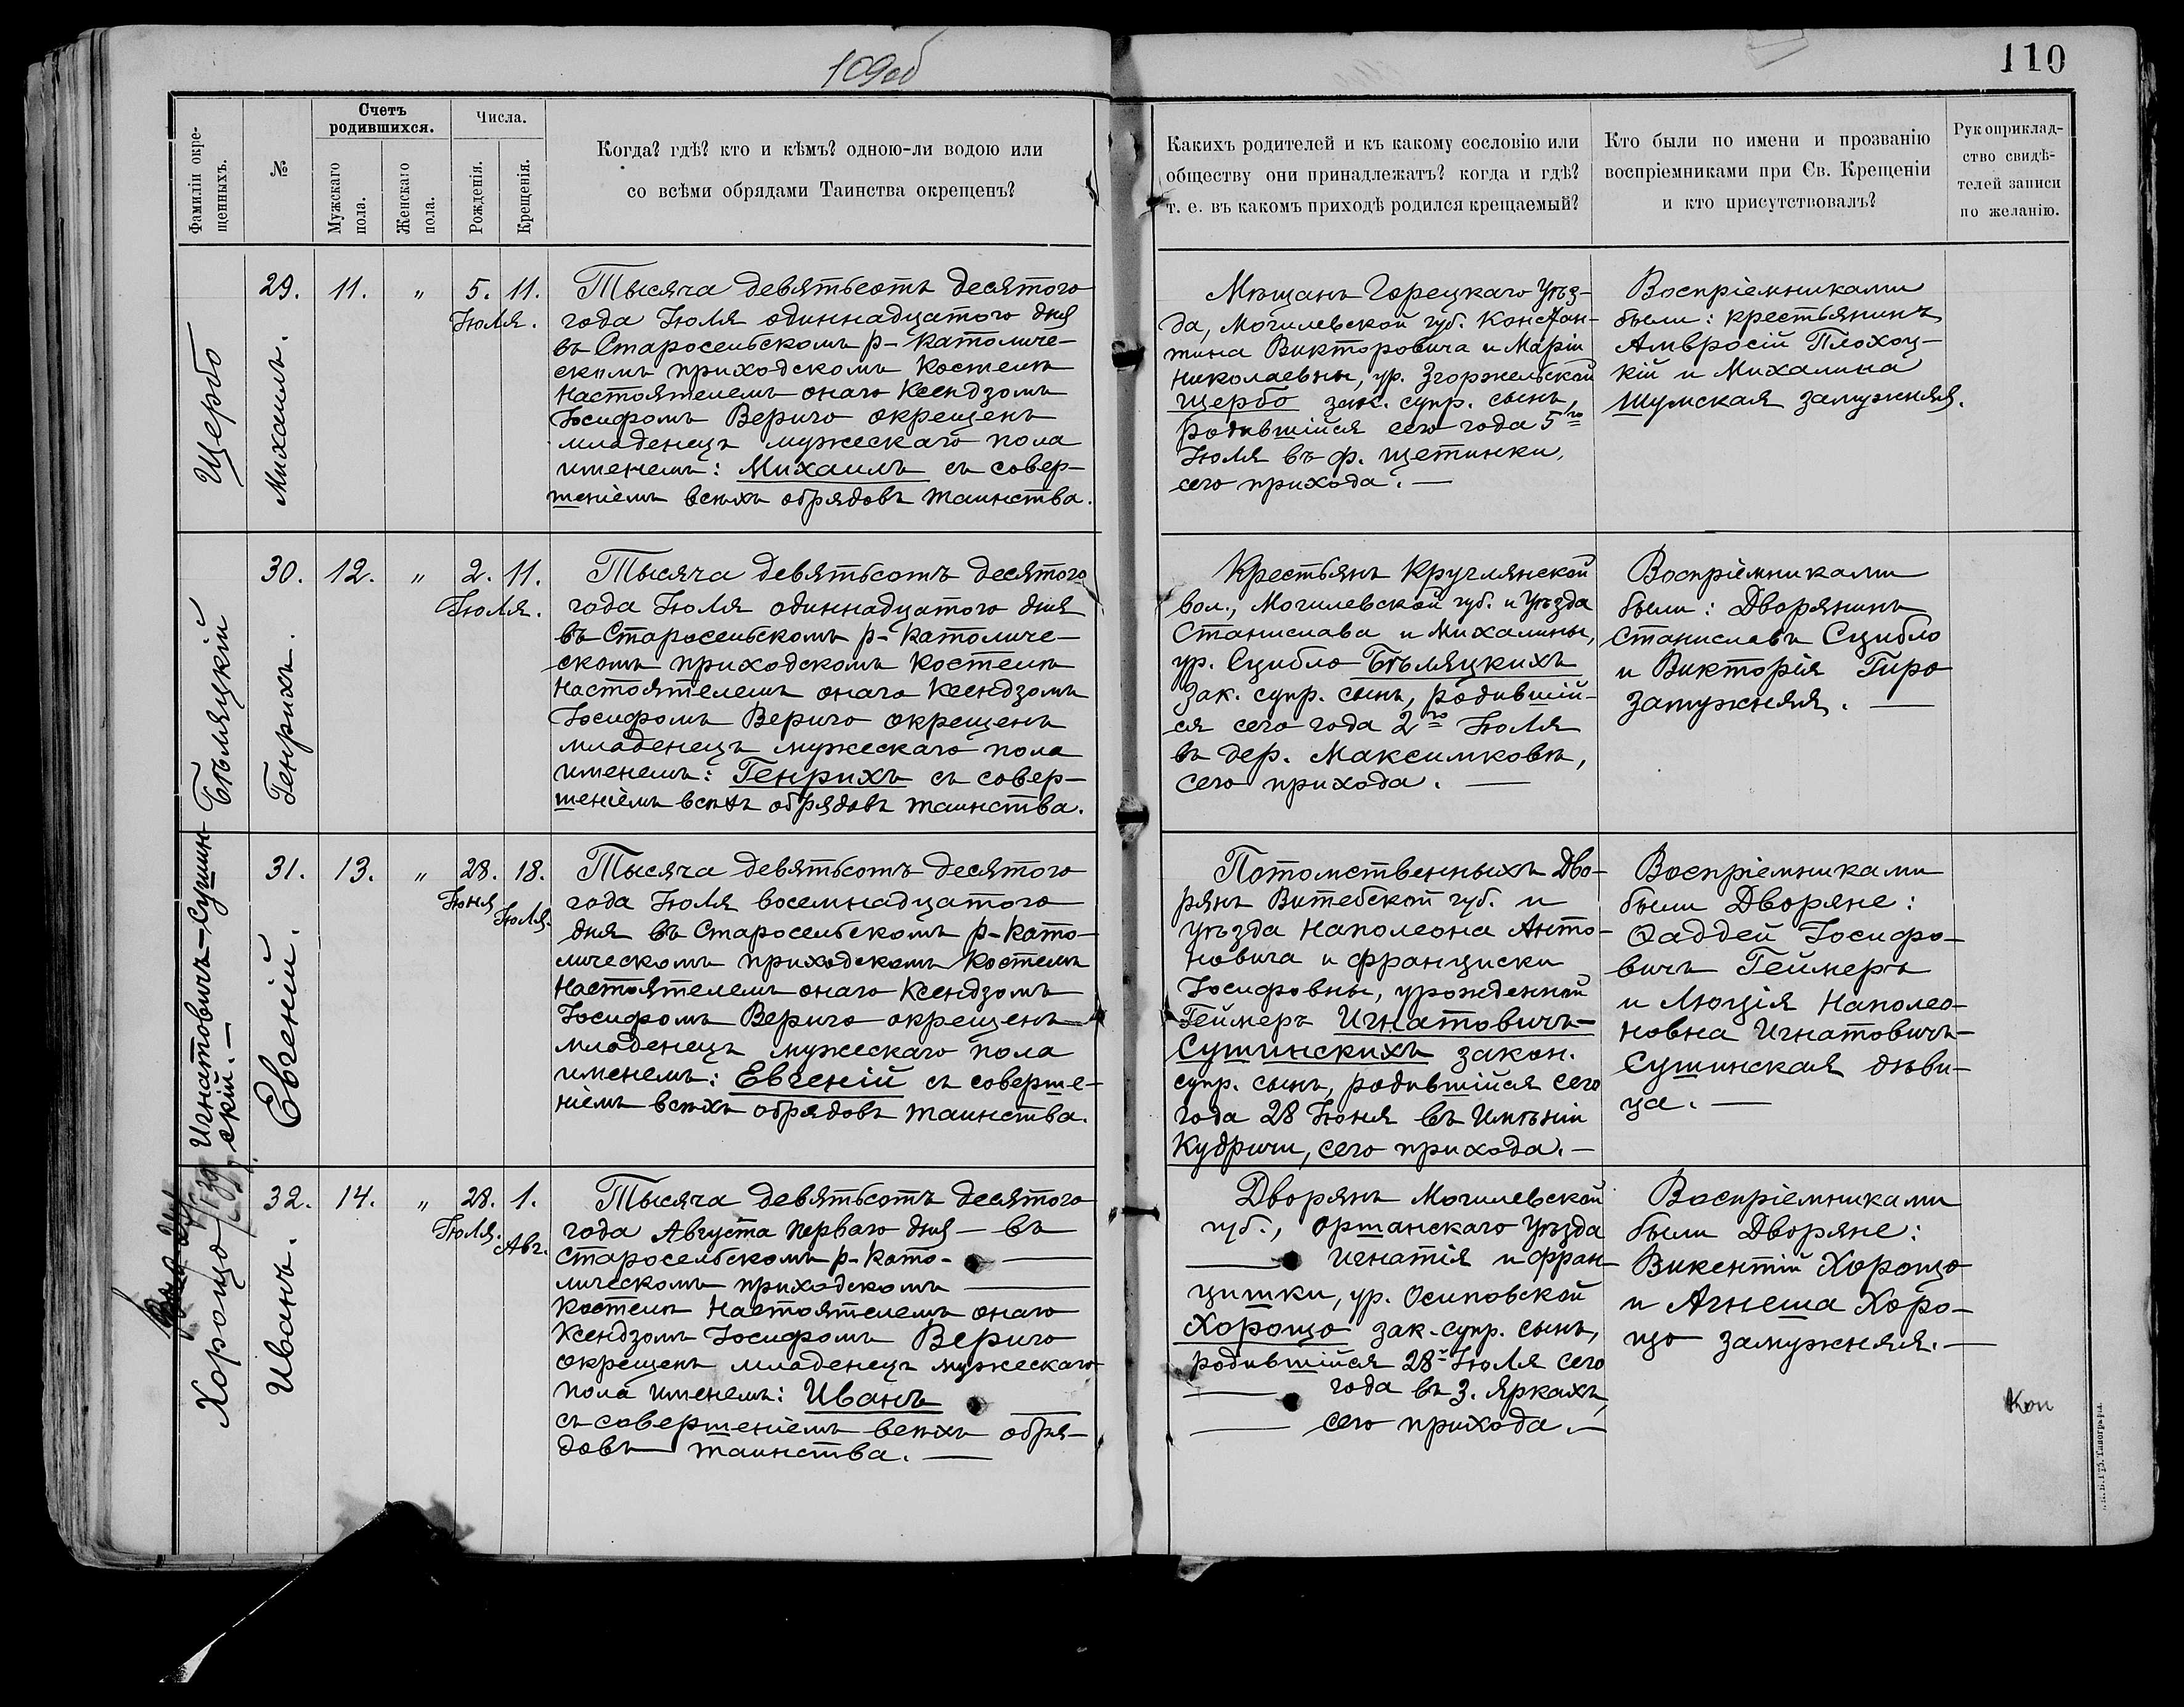 109об
110
Фамиліи окре-
щенныхъ.
№
Счетъ
родившихся.
Мужскаго
пола.
Женскаго
пола.
Числа.
Рожденія.
Крещенія.
Когда? гдѣ? кто и кѣмъ? одною-ли водою или
со всѣми обрядами Таинства окрещенъ?
Какихъ родителей и къ какому сословію или
обществу они принадлежатъ? когда и гдѣ?
т. е. въ какомъ приходѣ родился крещаемый?
Кто были по имени и прозванію
воспріемниками при Св. Крещеніи
и кто присутствовалъ?
Рукоприклад-
ство свидѣ-
телей записи
по желанію.
Щербо
29.
Михаилъ.
11.
"
5. 11.
Іюля.
Тысяча девятьсотъ десятого
года Іюля одиннадцатого дня
въ Старосельскомъ р-католиче-
скомъ приходскомъ костелѣ
Настоятелемъ онаго Ксендзомъ
Іосифомъ Верыго окрещенъ
младенецъ мужескаго пола
именемъ: Михаилъ съ совер-
шеніемъ всѣхъ обрядовъ таинства.
Мѣщанъ Горецкаго Уѣз-
да, Могилевской губ. Констан-
тина Викторовича и Маріи
Николаевны, ур. Згоржельской
Щербо зак. супр. сынъ,
родившійся сего года 5го
Іюля въ ф. Щетинки,
сего прихода. —
Воспріемниками
были: крестьянинъ
Амвросій Плохоц-
кій и Михалина
Шумская замужняя.
Бѣляцкій
30.
Генрихъ.
12.
"
2. 11.
Іюля.
Тысяча девятьсотъ десятого
года Іюля одиннадцатого дня
въ Старосельскомъ р-католиче-
скомъ приходскомъ костелѣ
Настоятелемъ онаго Ксендзомъ
Іосифомъ Верыго окрещенъ
младенецъ мужескаго пола
именемъ: Генрихъ съ совер-
шеніемъ всѣхъ обрядовъ таинства.
Крестьянъ Круглянской
вол., Могилевской губ. и Уѣзда
Станислава и Михалины,
ур. Сцибло Бѣляцкихъ
зак. супр. сынъ, родившій-
ся сего года 2го Іюля
въ дер. Максимковѣ,
сего прихода. —
Воспріемниками
были: Дворянинъ
Станиславъ Сцибло
и Викторія Гиро
замужняя. —
Игнатовичъ-Сушин-
скій. —
31.
Евгеній.
13.
"
28. 18.
Іюня
Іюля.
Тысяча девятьсотъ десятого
года Іюля восемнадцатого
дня въ Старосельскомъ р-като-
лическомъ приходскомъ костелѣ
Настоятелемъ онаго Ксендзомъ
Іосифомъ Верыго окрещенъ
младенецъ мужескаго пола
именемъ: Евгеній съ соверше-
ніемъ всѣхъ обрядовъ таинства.
Потомственныхъ Дво-
рянъ Витебской губ. и
уѣзда Наполеона Анто-
новича и Франциски
Іосифовны, урожденной
Геймеръ Игнатовичъ-
Сушинскихъ закон.
супр. сынъ, родившійся сего
года 28 Іюня въ Имѣніи
Кудричи, сего прихода. —
Воспріемниками
были Дворяне:
Фаддей Іосифо-
вичъ Геймеръ
и Люція Наполео-
новна Игнатовичъ-
Сушинская дѣви-
ца. —
Хорощо
32.
Иванъ.
14.
"
28. 1.
Іюля.
Авг.
Тысяча девятьсотъ десятого
года Августа перваго дня — въ
Старосельскомъ р-като-
лическомъ приходскомъ
костелѣ Настоятелемъ онаго
Ксендзомъ Іосифомъ Верыго
окрещенъ младенецъ мужескаго
пола именемъ: Иванъ
съ совершеніемъ всѣхъ обря-
довъ таинства. —
Дворянъ Могилевской
губ., Оршанскаго Уѣзда
Игнатія и Фран-
цишки, ур. Осиповской
Хорощо зак. супр. сынъ,
родившійся 28 Іюля сего
года въ з. Яркахъ,
сего прихода. —
Воспріемниками
были Дворяне:
Викентій Хорощо
и Агнеша Хоро-
що замужняя. —